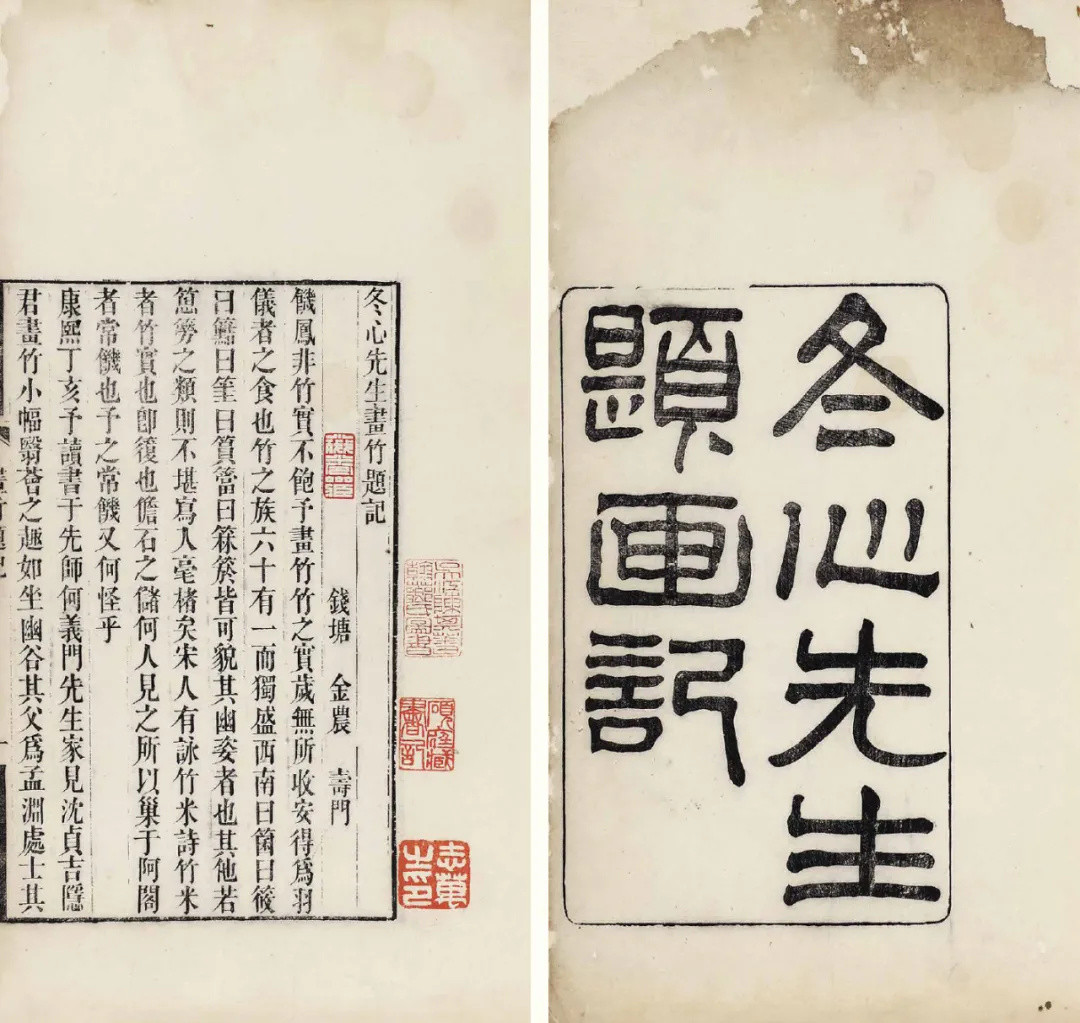 冬心先生
題畫記
冬心先生畫竹題記
錢塘 金農 壽門
饑鳳非竹實不飽予畫竹竹之實歲無所收安得爲羽
儀者之食也竹之族六十有一而獨盛西南曰箘曰筱
曰曰筀曰篔簹曰箖箊皆可貌其幽姿者也其他若
之類則不堪寫入毫楮矣宋人有詠竹米詩竹米
者竹實也卽也儋石之儲何人見之所以巢于阿閣
者常饑也予之常饑又何怪乎
康熙丁亥予讀書于先師何義門先生家見沈貞吉隱
君畫竹小幅翳薈之趣如坐幽谷其父爲孟淵處士其
志萬之印